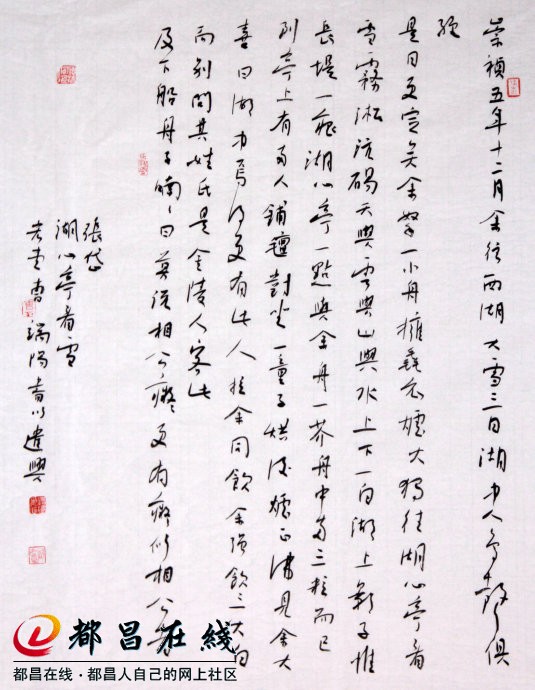 崇禎五年十二月余住西湖大雪三日湖中人鳥聲俱
絕
是日更定矣余拏一小舟擁毳衣爐火獨往湖心亭看
雪霧淞沆碭天與雲與山與水上下一白湖上影子惟
長堤一痕湖心亭一點與余舟一芥舟中兩三粒而已
到亭上有兩人鋪氈對坐一童子燒酒爐正沸見余大
喜曰湖中焉得更有此人拉余同飲余強飲三大白
而別問其姓氏是金陵人客此
及下船舟子喃〻曰莫說相公癡更有癡似相公者
張岱
湖心亭看雪
曹端陽書以遣興
都昌在线
都昌在线·都昌人自己的网上社区